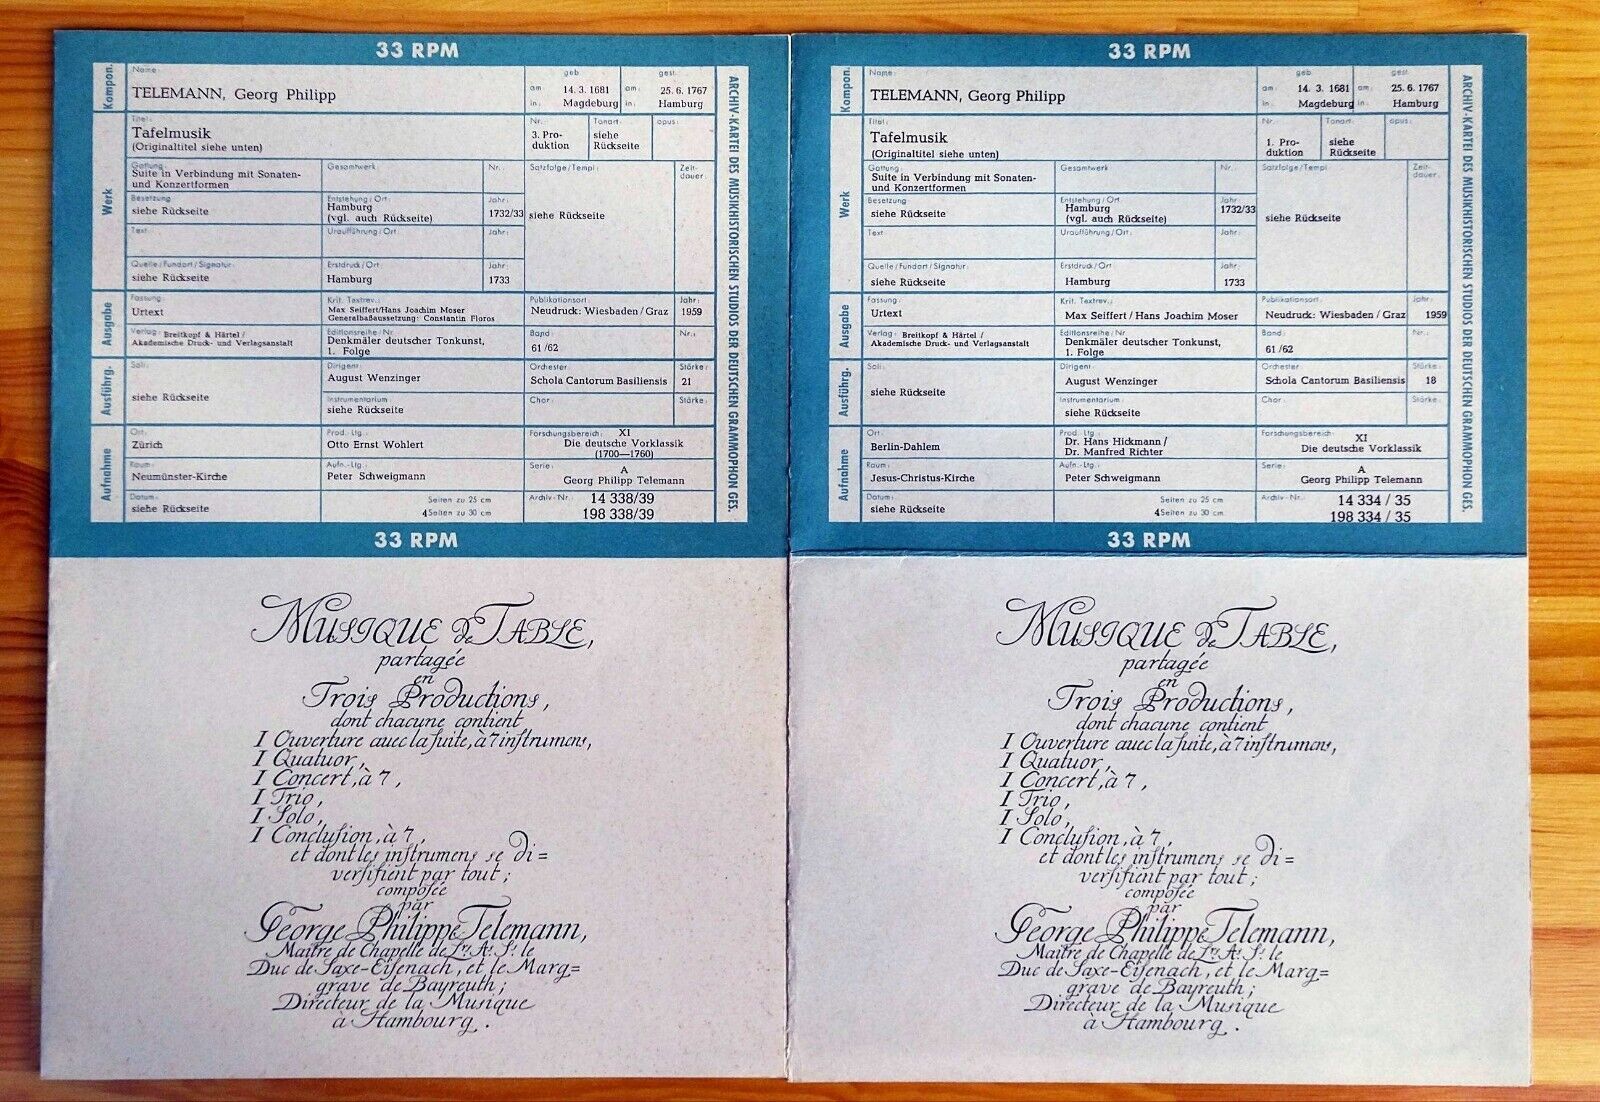 33 RPM
Kompon.
Name:
TELEMANN, Georg Philipp
geb.
am: 14. 3. 1681
in: Magdeburg
gest.
am: 25. 6. 1767
in: Hamburg
Werk
Titel:
Tafelmusik
(Originaltitel siehe unten)
Nr.
3. Pro-
duktion
Tonart:
siehe
Rückseite
opus:
Gattung:
Suite in Verbindung mit Sonaten-
und Konzertformen
Gesamtwerk
Nr.:
Satzfolge/Tempi:
siehe Rückseite
Zeit-
dauer:
Besetzung
siehe Rückseite
Entstehung/Ort:
Hamburg
(vgl. auch Rückseite)
Jahr:
1732/33
Text:
Uraufführung/Ort:
Jahr:
Quelle/Fundort/Signatur:
siehe Rückseite
Erstdruck/Ort
Hamburg
Jahr:
1733
Ausgabe
Fassung:
Urtext
Krit. Textrev.:
Max Seiffert/Hans Joachim Moser
Generalbaßaussetzung: Constantin Floros
Publikationsort:
Neudruck: Wiesbaden/Graz
Jahr:
1959
Verlag: Breitkopf & Härtel/
Akademische Druck- und Verlagsanstalt
Editionsreihe/Nr
Denkmäler deutscher Tonkunst,
1. Folge
Band:
61/62
Nr.:
Ausführg.
Soli:
siehe Rückseite
Dirigent:
August Wenzinger
Orchester
Schola Cantorum Basiliensis
Stärke:
21
Instrumentarium:
siehe Rückseite
Chor:
Stärke:
Aufnahme
Ort:
Zürich
Prod.-Ltg.:
Otto Ernst Wohlert
Forschungsbereich: XI
Die deutsche Vorklassik
(1700—1760)
Raum:
Neumünster-Kirche
Aufn.-Ltg.:
Peter Schweigmann
Serie: A
Georg Philipp Telemann
Datum:
siehe Rückseite
Seiten zu 25 cm
4 Seiten zu 30 cm
Archiv-Nr.: 14 338/39
198 338/39
ARCHIV-KARTEI DES MUSIKHISTORISCHEN STUDIOS DER DEUTSCHEN GRAMMOPHON GES.
33 RPM
MUSIQUE de TABLE,
partagée
en
Trois Productions,
dont chacune contient
I Ouverture auec la ſuite, à 7 inſtrumens,
I Quatuor,
I Concert, à 7,
I Trio,
I Solo,
I Concluſion, à 7,
et dont les inſtrumens se di=
verſifient par tout;
compoſée
par
George Philippe Telemann,
Maître de Chapelle de L.rs A.s S.t le
Duc de Saxe-Eiſenach, et le Marg=
grave de Bayreuth;
Directeur de la Musique
à Hambourg.
33 RPM
Kompon.
Name:
TELEMANN, Georg Philipp
geb.
am: 14. 3. 1681
in: Magdeburg
gest.
am: 25. 6. 1767
in: Hamburg
Werk
Titel:
Tafelmusik
(Originaltitel siehe unten)
Nr.
1. Pro-
duktion
Tonart:
siehe
Rückseite
opus:
Gattung:
Suite in Verbindung mit Sonaten-
und Konzertformen
Gesamtwerk
Nr.:
Satzfolge/Tempi
siehe Rückseite
Zeit-
dauer:
Besetzung
siehe Rückseite
Entstehung/Ort:
Hamburg
(vgl. auch Rückseite)
Jahr:
1732/33
Text
Uraufführung/Ort:
Jahr:
Quelle/Fundort/Signatur:
siehe Rückseite
Erstdruck/Ort
Hamburg
Jahr:
1733
Ausgabe
Fassung:
Urtext
Krit. Textrev.:
Max Seiffert/Hans Joachim Moser
Publikationsort:
Neudruck: Wiesbaden/Graz
Jahr:
1959
Verlag: Breitkopf & Härtel/
Akademische Druck- und Verlagsanstalt
Editionsreihe/Nr
Denkmäler deutscher Tonkunst,
1. Folge
Band:
61/62
Nr.:
Ausführg.
Soli:
siehe Rückseite
Dirigent:
August Wenzinger
Orchester
Schola Cantorum Basiliensis
Stärke:
18
Instrumentarium:
siehe Rückseite
Chor:
Stärke:
Aufnahme
Ort:
Berlin-Dahlem
Prod.-Ltg.:
Dr. Hans Hickmann/
Dr. Manfred Richter
Forschungsbereich: XI
Die deutsche Vorklassik
Raum:
Jesus-Christus-Kirche
Aufn.-Ltg.:
Peter Schweigmann
Serie: A
Georg Philipp Telemann
Datum:
siehe Rückseite
Seiten zu 25 cm
4 Seiten zu 30 cm
Archiv-Nr.: 14 334 / 35
198 334 / 35
ARCHIV-KARTEI DES MUSIKHISTORISCHEN STUDIOS DER DEUTSCHEN GRAMMOPHON GES.
33 RPM
MUSIQUE de TABLE,
partagée
en
Trois Productions,
dont chacune contient
I Ouverture auec la ſuite, à 7 inſtrumens,
I Quatuor,
I Concert, à 7,
I Trio,
I Solo,
I Concluſion, à 7,
et dont les inſtrumens se di=
verſifient par tout;
compoſée
par
George Philippe Telemann,
Maître de Chapelle de L.rs A.s S.t le
Duc de Saxe-Eiſenach, et le Marg=
grave de Bayreuth;
Directeur de la Musique
à Hambourg.